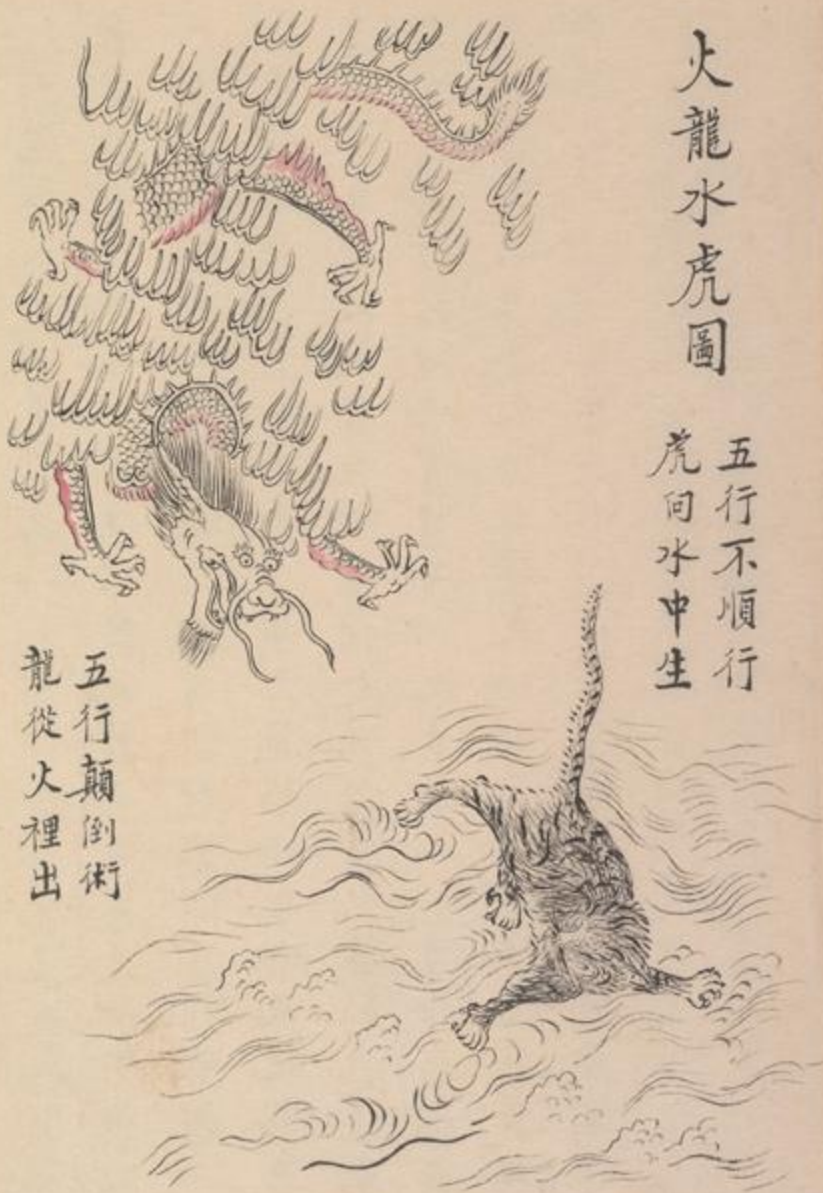 火龍水虎圖
五行不順行
虎向水中生
五行顛倒術
龍從火裡出